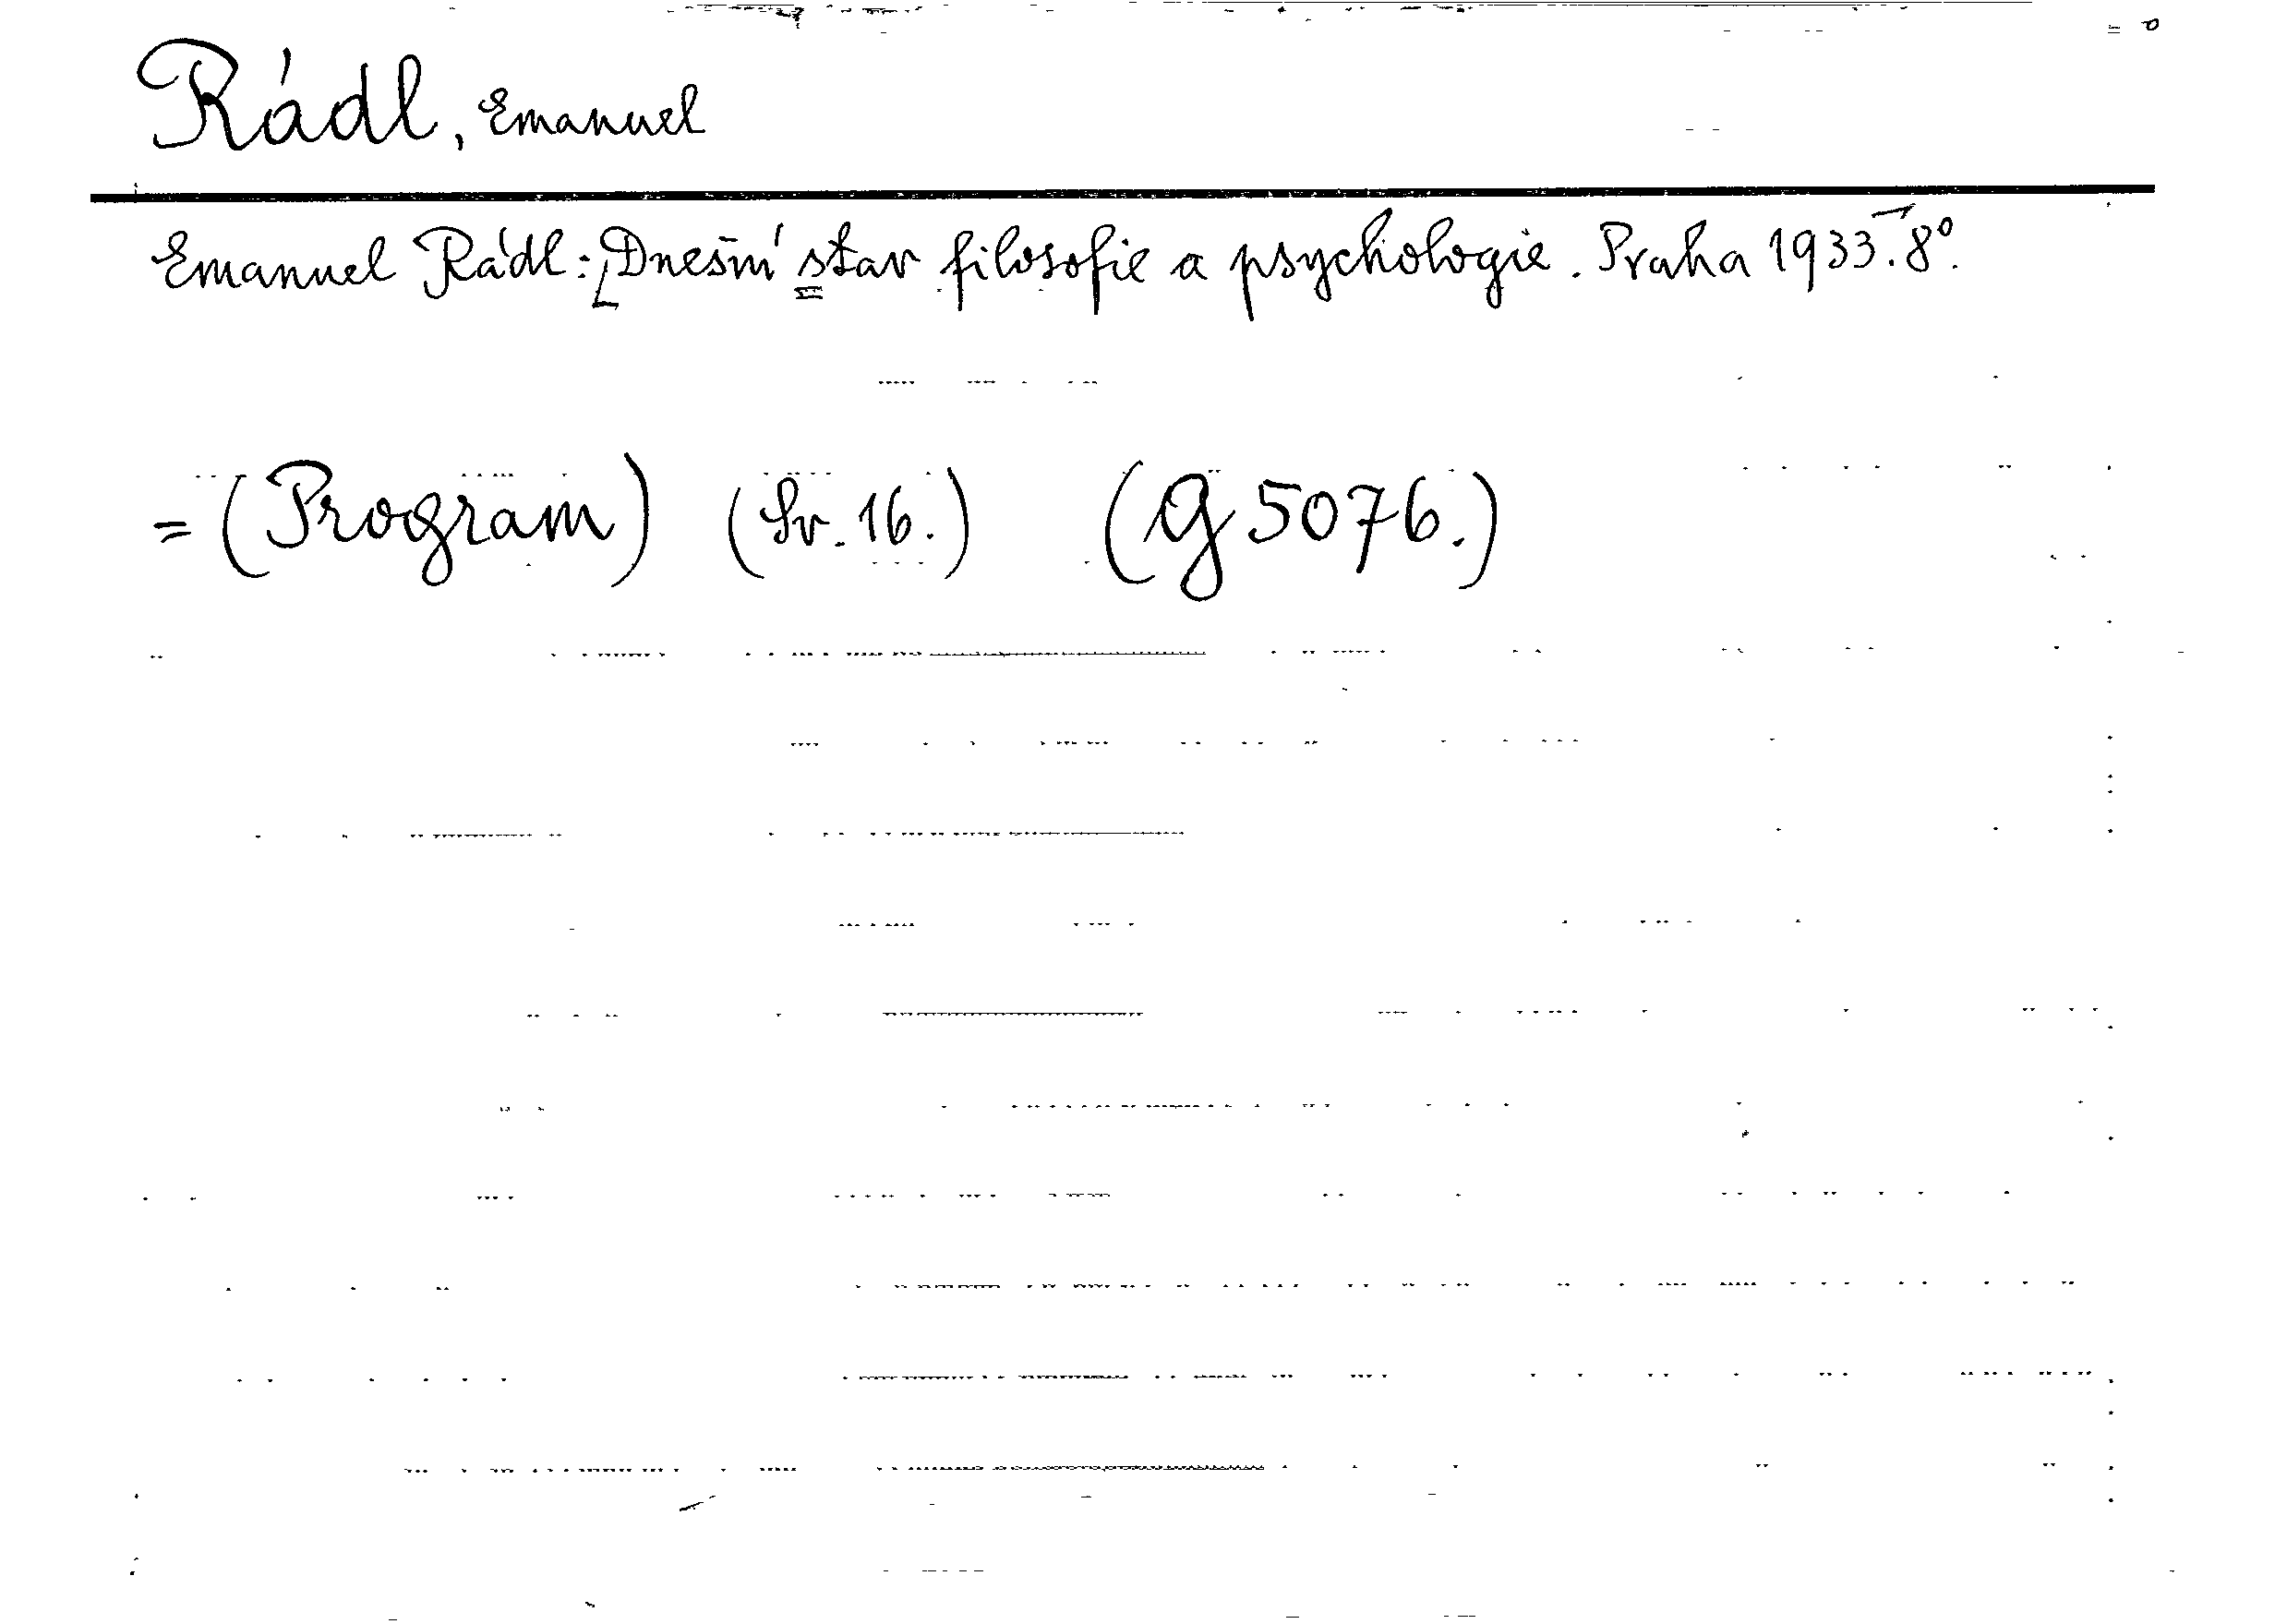 Rádl, Emanuel
Emanuel Rádl: Dnešní stav filosofie a psychologie. Praha 1933. 8°.
= (Program) (Sv. 16.) (G 5076.)